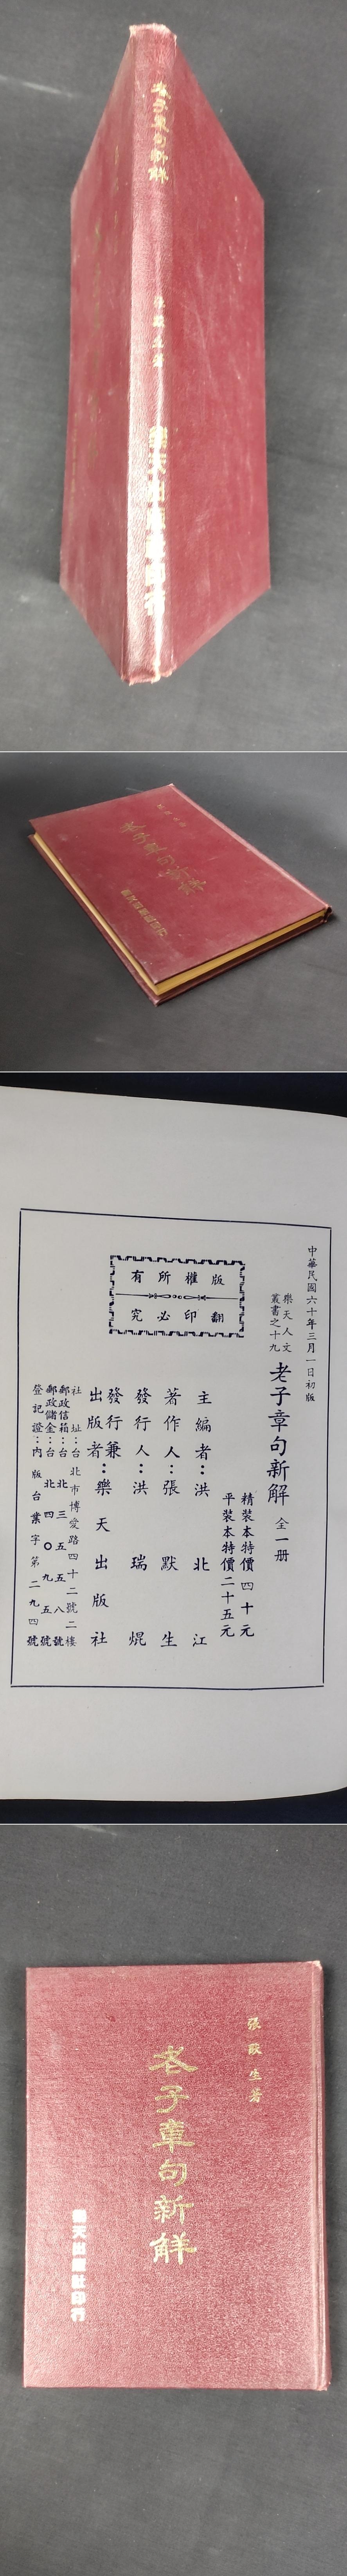 老子章句新解
張默生著
樂天出版社印行
老子章句新解
中華民國六十年三月一日初版
樂天人文
叢書之十九
老子章句新解 全一册
精裝本特價四十元
平裝本特價二十五元
主編者：洪北江
著作人：張默生
發行人：洪瑞焜
發行兼
出版者：樂天出版社
社址：台北市博愛路四十二號二樓
郵政信箱：台北三五五八號
郵政儲金：台北四〇九五號
登記證：內版台業字第二九四號
版權所有
翻印必究
張默生著
老子章句新解
樂天出版社印行